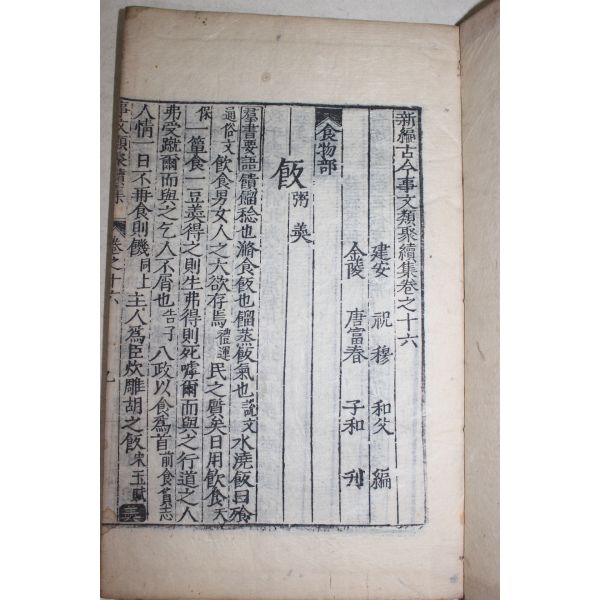 新編古今事文類聚續集卷之十六
建安 祝穆 和父 編
金陵 唐富春 子和 刊
食物部
飯 粥 羹
羣書要語饙餾稔也滫食飯也餾蒸飯氣也說文水澆飯曰飱
通俗文飲食男女人之大欲存焉禮運民之質矣日用飲食天
保一簞食一豆羹得之則生弗得則死嘑爾而與之行道之人
弗受蹴爾而與之乞人不屑也告子八政以食爲首前食貨志
人情一日不再食則饑同上主人爲臣炊雕胡之飯宋玉賦
事文類聚續集 卷之十六